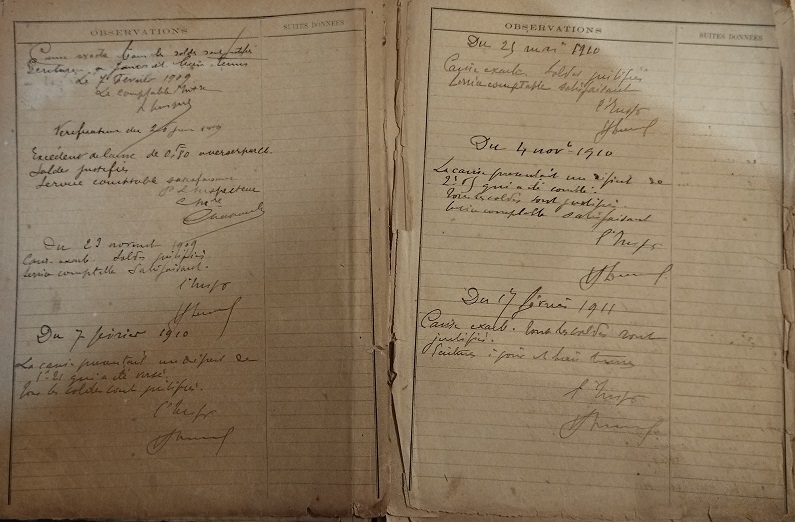 OBSERVATIONS
SUITES DONNÉES
Caisse exacte. Tous les soldes sont justifiés
Écritures à jour et bien tenues
Le 1er Février 1909
Le comptable
Vérification du 2 juin 1909
Excédent de caisse de 0.50
Soldes justifiés
Service comptable satisfaisant
P. L'inspecteur
Du 23 novembre 1909
Caisse exacte. Soldes justifiés
Service comptable satisfaisant.
l'Insp
Du 7 février 1910
La caisse présentait un déficit de
qui a été versé.
Tous les soldes sont justifiés.
l'Insp
OBSERVATIONS
SUITES DONNÉES
Du 25 mai 1910
Caisse exacte. Soldes justifiés
Service comptable satisfaisant
l'Insp
Du 4 nov. 1910
La caisse présentait un déficit de
qui a été comblé.
Tous les soldes sont justifiés
Service comptable satisfaisant
l'Insp
Du 17 février 1911
Caisse exacte. Tous les soldes sont
justifiés.
Écritures à jour et bien tenues
l'Insp